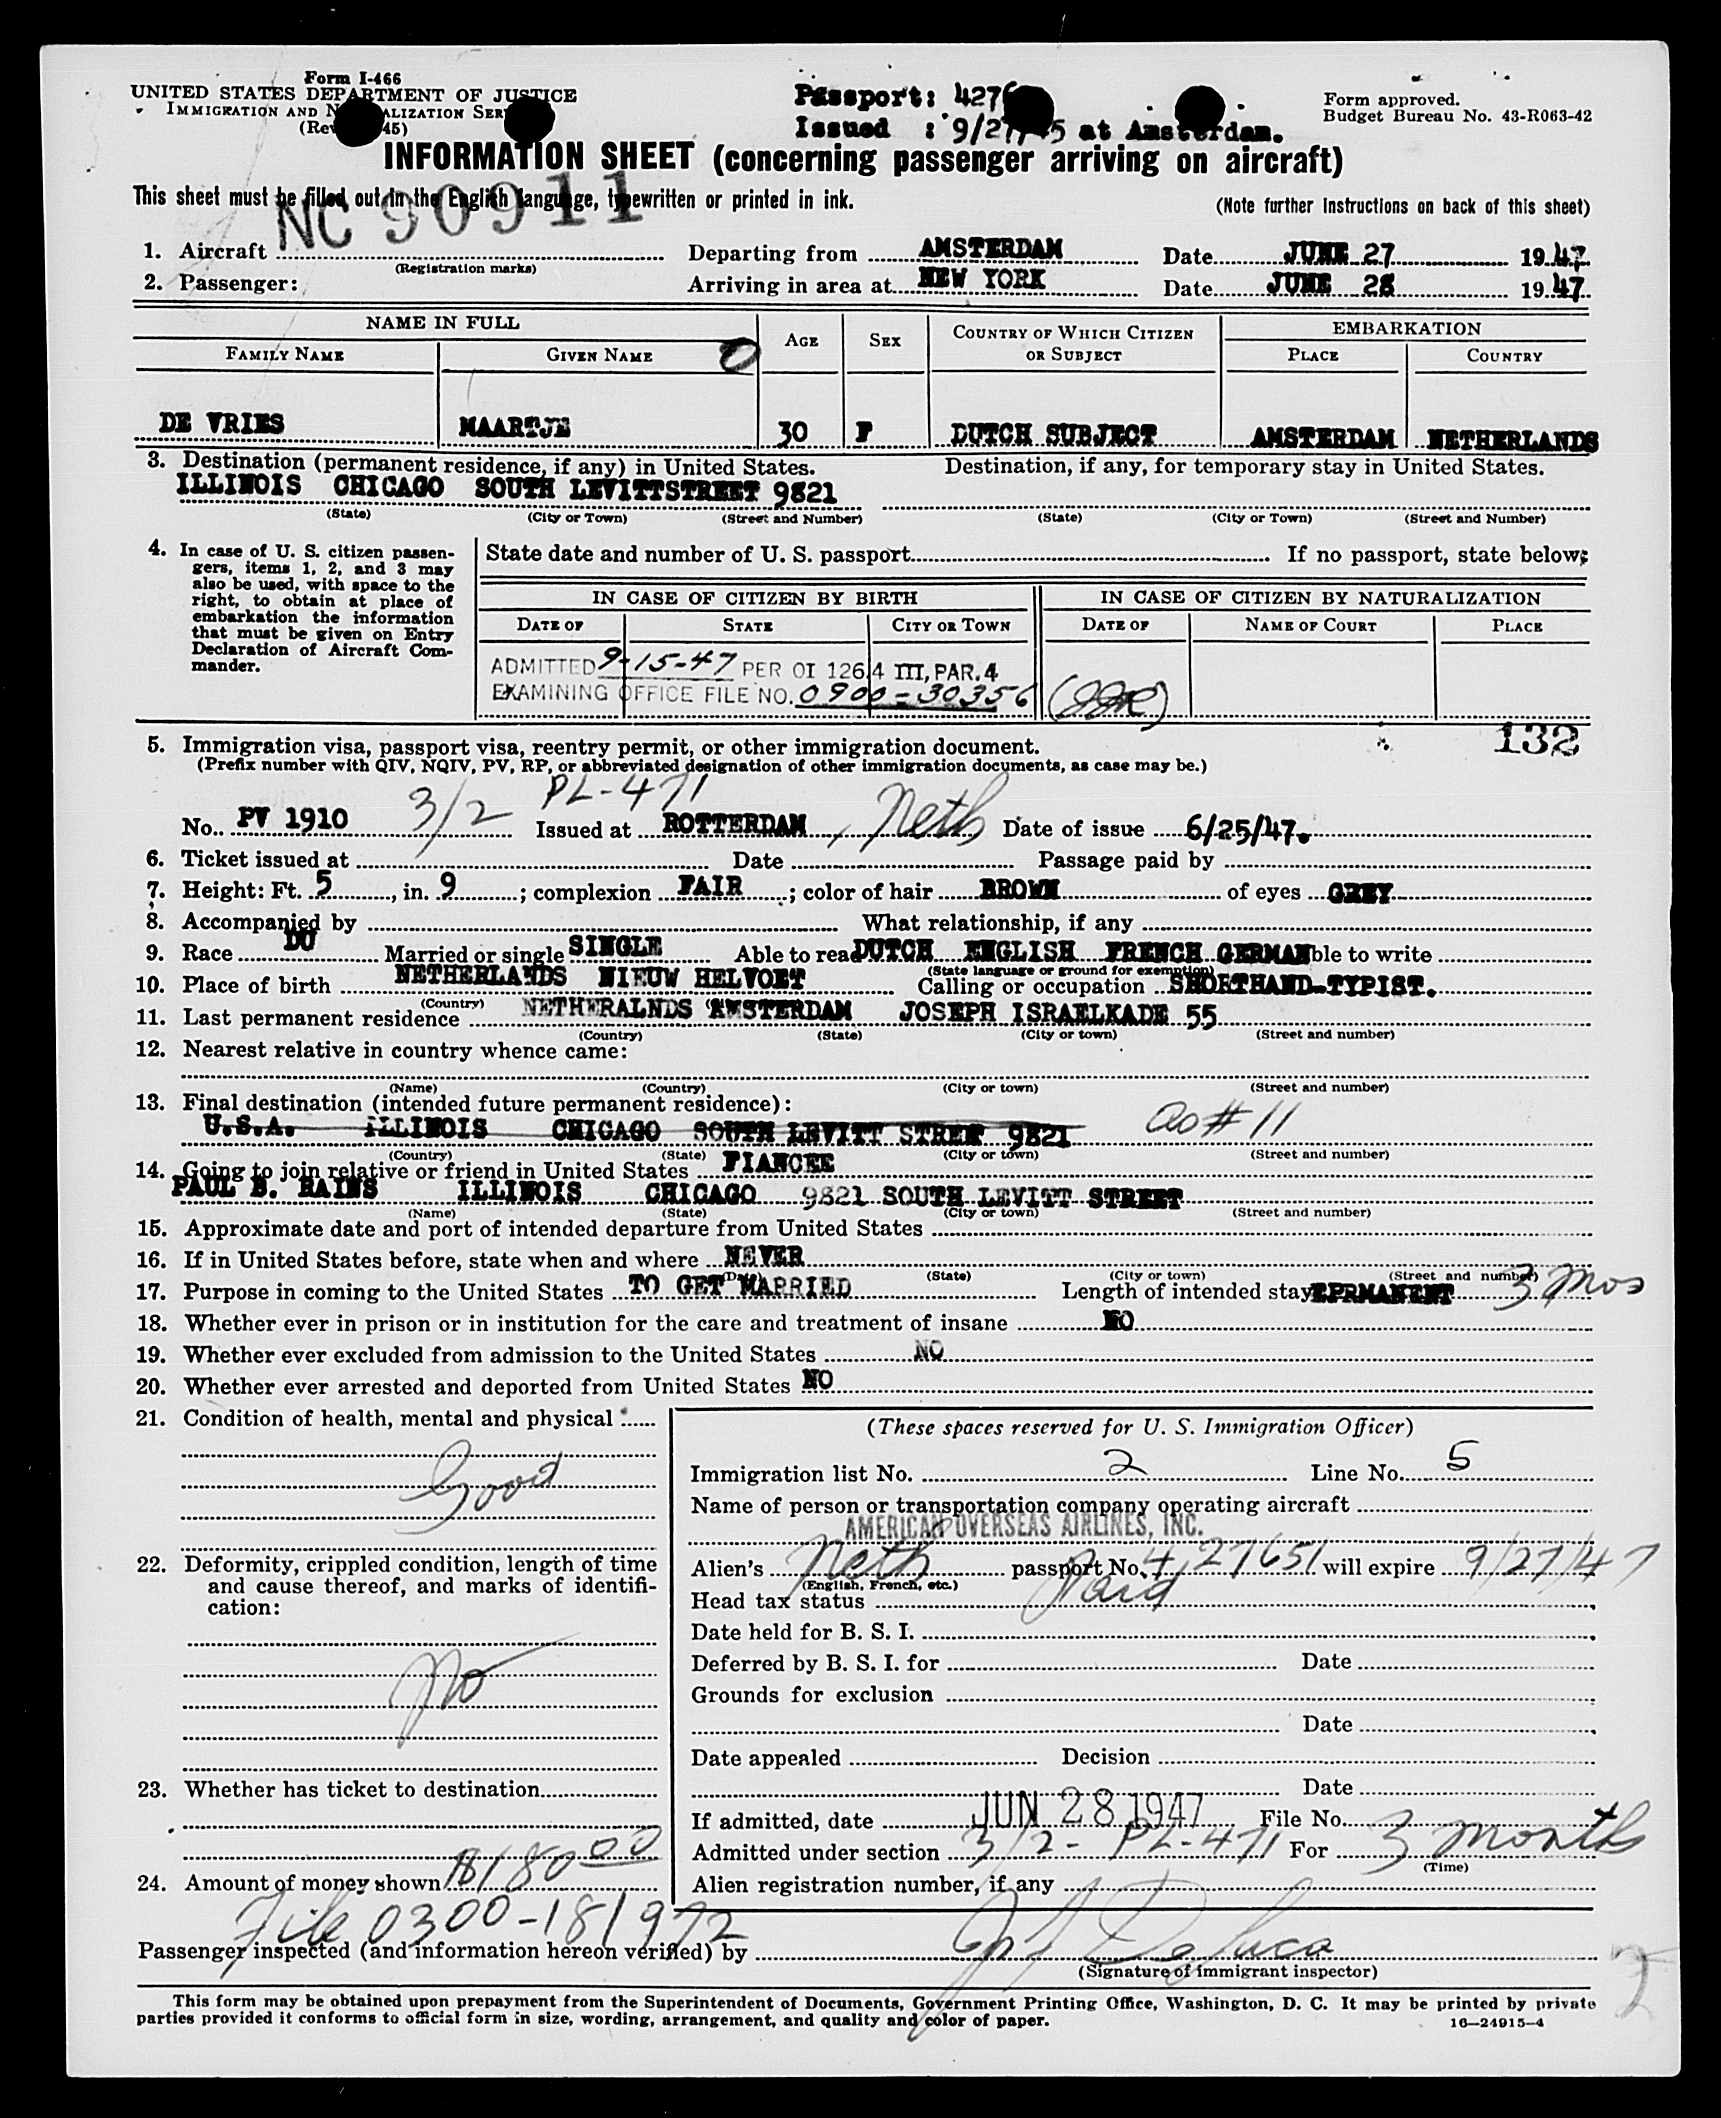 Form I-466
UNITED STATES DEPARTMENT OF JUSTICE
IMMIGRATION AND NATURALIZATION SER
(Rev 45)
Passport: 427
Issued : 9/27/45 at Amsterdam.
Form approved.
Budget Bureau No. 43-R063-42
INFORMATION SHEET (concerning passenger arriving on aircraft)
This sheet must be filled out in the English language, typewritten or printed in ink.
(Note further instructions on back of this sheet)
NC 90911
1. Aircraft Departing from AMSTERDAM Date JUNE 27 1947
(Registration marks)
2. Passenger: Arriving in area at NEW YORK Date JUNE 28 1947
NAME IN FULL AGE SEX COUNTRY OF WHICH CITIZEN OR SUBJECT EMBARKATION
FAMILY NAME GIVEN NAME PLACE COUNTRY
DE VRIES MAARTJE 30 F DUTCH SUBJECT AMSTERDAM NETHERLANDS
3. Destination (permanent residence, if any) in United States. Destination, if any, for temporary stay in United States.
ILLINOIS CHICAGO SOUTH LEVITTSTREET 9821
(State) (City or Town) (Street and Number) (State) (City or Town) (Street and Number)
4. In case of U. S. citizen passen-
gers, items 1, 2, and 3 may
also be used, with space to the
right, to obtain at place of
embarkation the information
that must be given on Entry
Declaration of Aircraft Com-
mander.
State date and number of U. S. passport If no passport, state below:
IN CASE OF CITIZEN BY BIRTH IN CASE OF CITIZEN BY NATURALIZATION
DATE OF STATE CITY OR TOWN DATE OF NAME OF COURT PLACE
ADMITTED 9-15-47 PER OI 126.4 III, PAR. 4
EXAMINING OFFICE FILE NO. 0900-30356
132
5. Immigration visa, passport visa, reentry permit, or other immigration document.
(Prefix number with QIV, NQIV, PV, RP, or abbreviated designation of other immigration documents, as case may be.)
3/2 PL-471
No. PV 1910 Issued at ROTTERDAM, Neth Date of issue 6/25/47.
6. Ticket issued at Date Passage paid by
7. Height: Ft. 5, in. 9; complexion FAIR; color of hair BROWN of eyes GREY
8. Accompanied by What relationship, if any
9. Race DU Married or single SINGLE Able to read DUTCH ENGLISH FRENCH GERMAN ble to write
(State language or ground for exemption)
10. Place of birth NETHERLANDS NIEUW HELVOET Calling or occupation SHORTHAND-TYPIST.
(Country)
11. Last permanent residence NETHERALNDS AMSTERDAM JOSEPH ISRAELKADE 55
(Country) (State) (City or town) (Street and number)
12. Nearest relative in country whence came:
(Name) (Country) (City or town) (Street and number)
13. Final destination (intended future permanent residence):
U.S.A. ILLINOIS CHICAGO SOUTH LEVITT STREET 9821 ao # 11
(Country) (State) (City or town) (Street and number)
14. Going to join relative or friend in United States FIANCEE
PAUL B. HAINS ILLINOIS CHICAGO 9821 SOUTH LEVITT STREET
(Name) (State) (City or town) (Street and number)
15. Approximate date and port of intended departure from United States
16. If in United States before, state when and where NEVER
(Date) (State) (City or town) (Street and number)
17. Purpose in coming to the United States TO GET MARRIED Length of intended stay EPRMANENT 3 mos
18. Whether ever in prison or in institution for the care and treatment of insane NO
19. Whether ever excluded from admission to the United States NO
20. Whether ever arrested and deported from United States NO
21. Condition of health, mental and physical
Good
22. Deformity, crippled condition, length of time
and cause thereof, and marks of identifi-
cation:
No
23. Whether has ticket to destination
24. Amount of money shown $180 00
(These spaces reserved for U. S. Immigration Officer)
Immigration list No. 2 Line No. 5
Name of person or transportation company operating aircraft
AMERICAN OVERSEAS AIRLINES, INC.
Alien's Neth passport No. 427651 will expire 9/27/47
(English, French, etc.)
Head tax status Paid
Date held for B. S. I.
Deferred by B. S. I. for Date
Grounds for exclusion
Date
Date appealed Decision
Date
If admitted, date JUN 28 1947 File No.
Admitted under section 3/2 - PL-471 For 3 months
(Time)
Alien registration number, if any
File 0300-181972
Passenger inspected (and information hereon verified) by
(Signature of immigrant inspector)
This form may be obtained upon prepayment from the Superintendent of Documents, Government Printing Office, Washington, D. C. It may be printed by private
parties provided it conforms to official form in size, wording, arrangement, and quality and color of paper.
16—24915-4